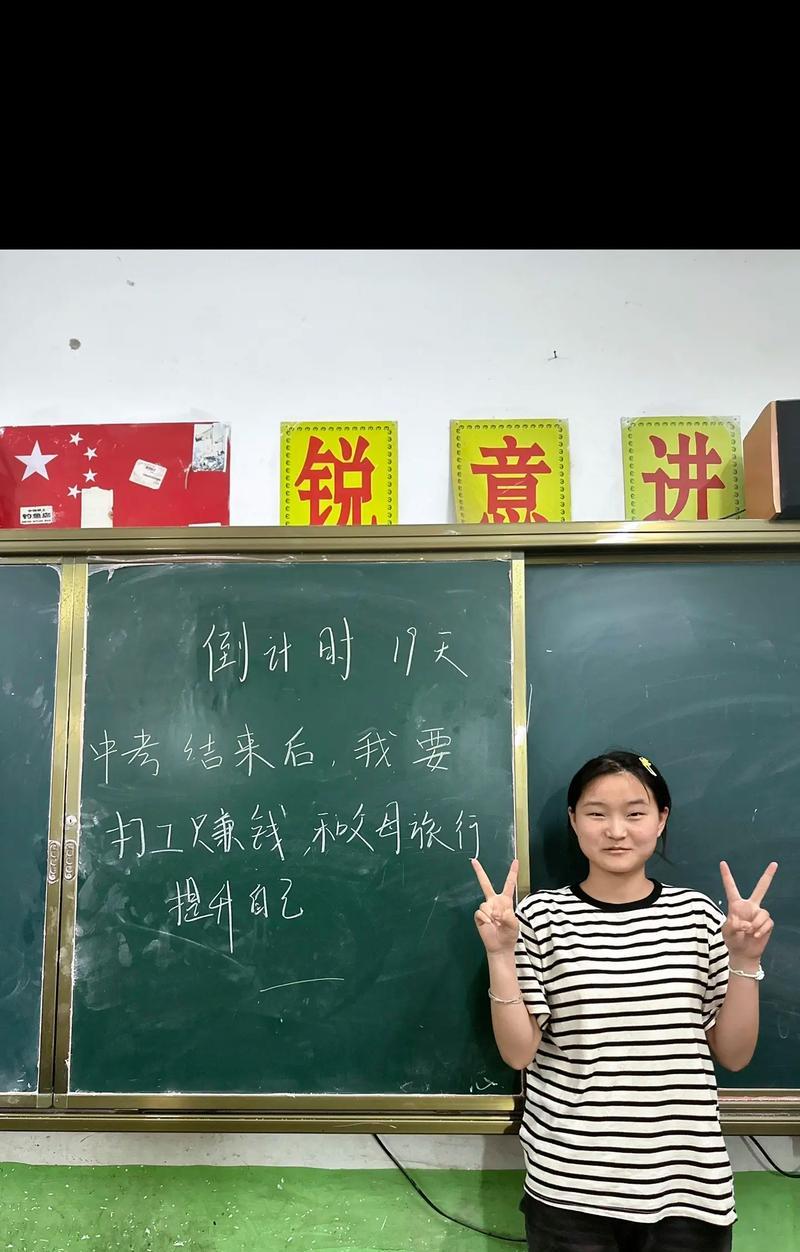 锐 意 进
钓鱼岛
倒计时 19天
中考结束后,我要
打工赚钱,和父母旅行
提升自己